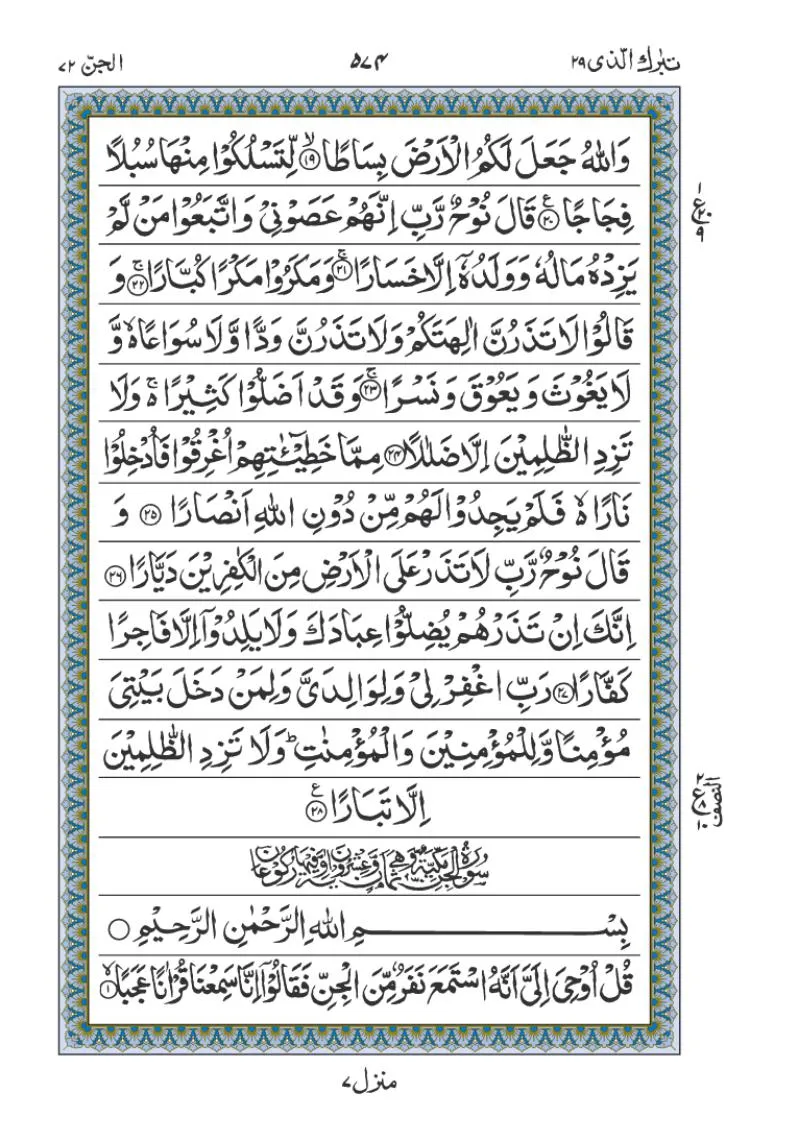 تبٰرك الّذى ٢٩
٥٧٤
الجنّ ٧٢
وَاللّٰهُ جَعَلَ لَكُمُ الْاَرْضَ بِسَاطًا ۙ﴿١٩﴾ لِّتَسْلُكُوْا مِنْهَا سُبُلًا
فِجَاجًا ﴿٢٠﴾ۧ قَالَ نُوْحٌ رَّبِّ اِنَّهُمْ عَصَوْنِىْ وَاتَّبَعُوْا مَنْ لَّمْ
يَزِدْهُ مَالُهٗ وَوَلَدُهٗۤ اِلَّا خَسَارًا ۚ﴿٢١﴾ وَمَكَرُوْا مَكْرًا كُبَّارًا ۚ﴿٢٢﴾ وَ
قَالُوْا لَا تَذَرُنَّ اٰلِهَتَكُمْ وَلَا تَذَرُنَّ وَدًّا وَّلَا سُوَاعًا ۙ۬ وَّ
لَا يَغُوْثَ وَيَعُوْقَ وَنَسْرًا ۚ﴿٢٣﴾ وَقَدْ اَضَلُّوْا كَثِيْرًا ۚ۬ وَلَا
تَزِدِ الظّٰلِمِيْنَ اِلَّا ضَلٰلًا ﴿٢٤﴾ مِمَّا خَطِيْٓــٰٔتِهِمْ اُغْرِقُوْا فَاُدْخِلُوْا
نَارًا ۙ۬ فَلَمْ يَجِدُوْا لَهُمْ مِّنْ دُوْنِ اللّٰهِ اَنْصَارًا ﴿٢٥﴾ وَ
قَالَ نُوْحٌ رَّبِّ لَا تَذَرْ عَلَى الْاَرْضِ مِنَ الْكٰفِرِيْنَ دَيَّارًا ﴿٢٦﴾
اِنَّكَ اِنْ تَذَرْهُمْ يُضِلُّوْا عِبَادَكَ وَلَا يَلِدُوْۤا اِلَّا فَاجِرًا
كَفَّارًا ﴿٢٧﴾ رَبِّ اغْفِرْ لِىْ وَلِوَالِدَىَّ وَلِمَنْ دَخَلَ بَيْتِىَ
مُؤْمِنًا وَّلِلْمُؤْمِنِيْنَ وَالْمُؤْمِنٰتِ ؕ وَلَا تَزِدِ الظّٰلِمِيْنَ
اِلَّا تَبَارًا ﴿٢٨﴾ۧ
سُوْرَةُ الْجِنِّ مَكِّيَّةٌ وَّهِىَ ثَمَانٍ وَّعِشْرُوْنَ اٰيَةً وَّفِيْهَا رُكُوْعَانِ
بِسْمِ اللّٰهِ الرَّحْمٰنِ الرَّحِيْمِ ۝
قُلْ اُوْحِىَ اِلَىَّ اَنَّهُ اسْتَمَعَ نَفَرٌ مِّنَ الْجِنِّ فَقَالُوْۤا اِنَّا سَمِعْنَا قُرْاٰنًا عَجَبًا ۙ﴿١﴾
١
ع ٢٠
٩
٢
ع ٨
النصف
منزل ٧